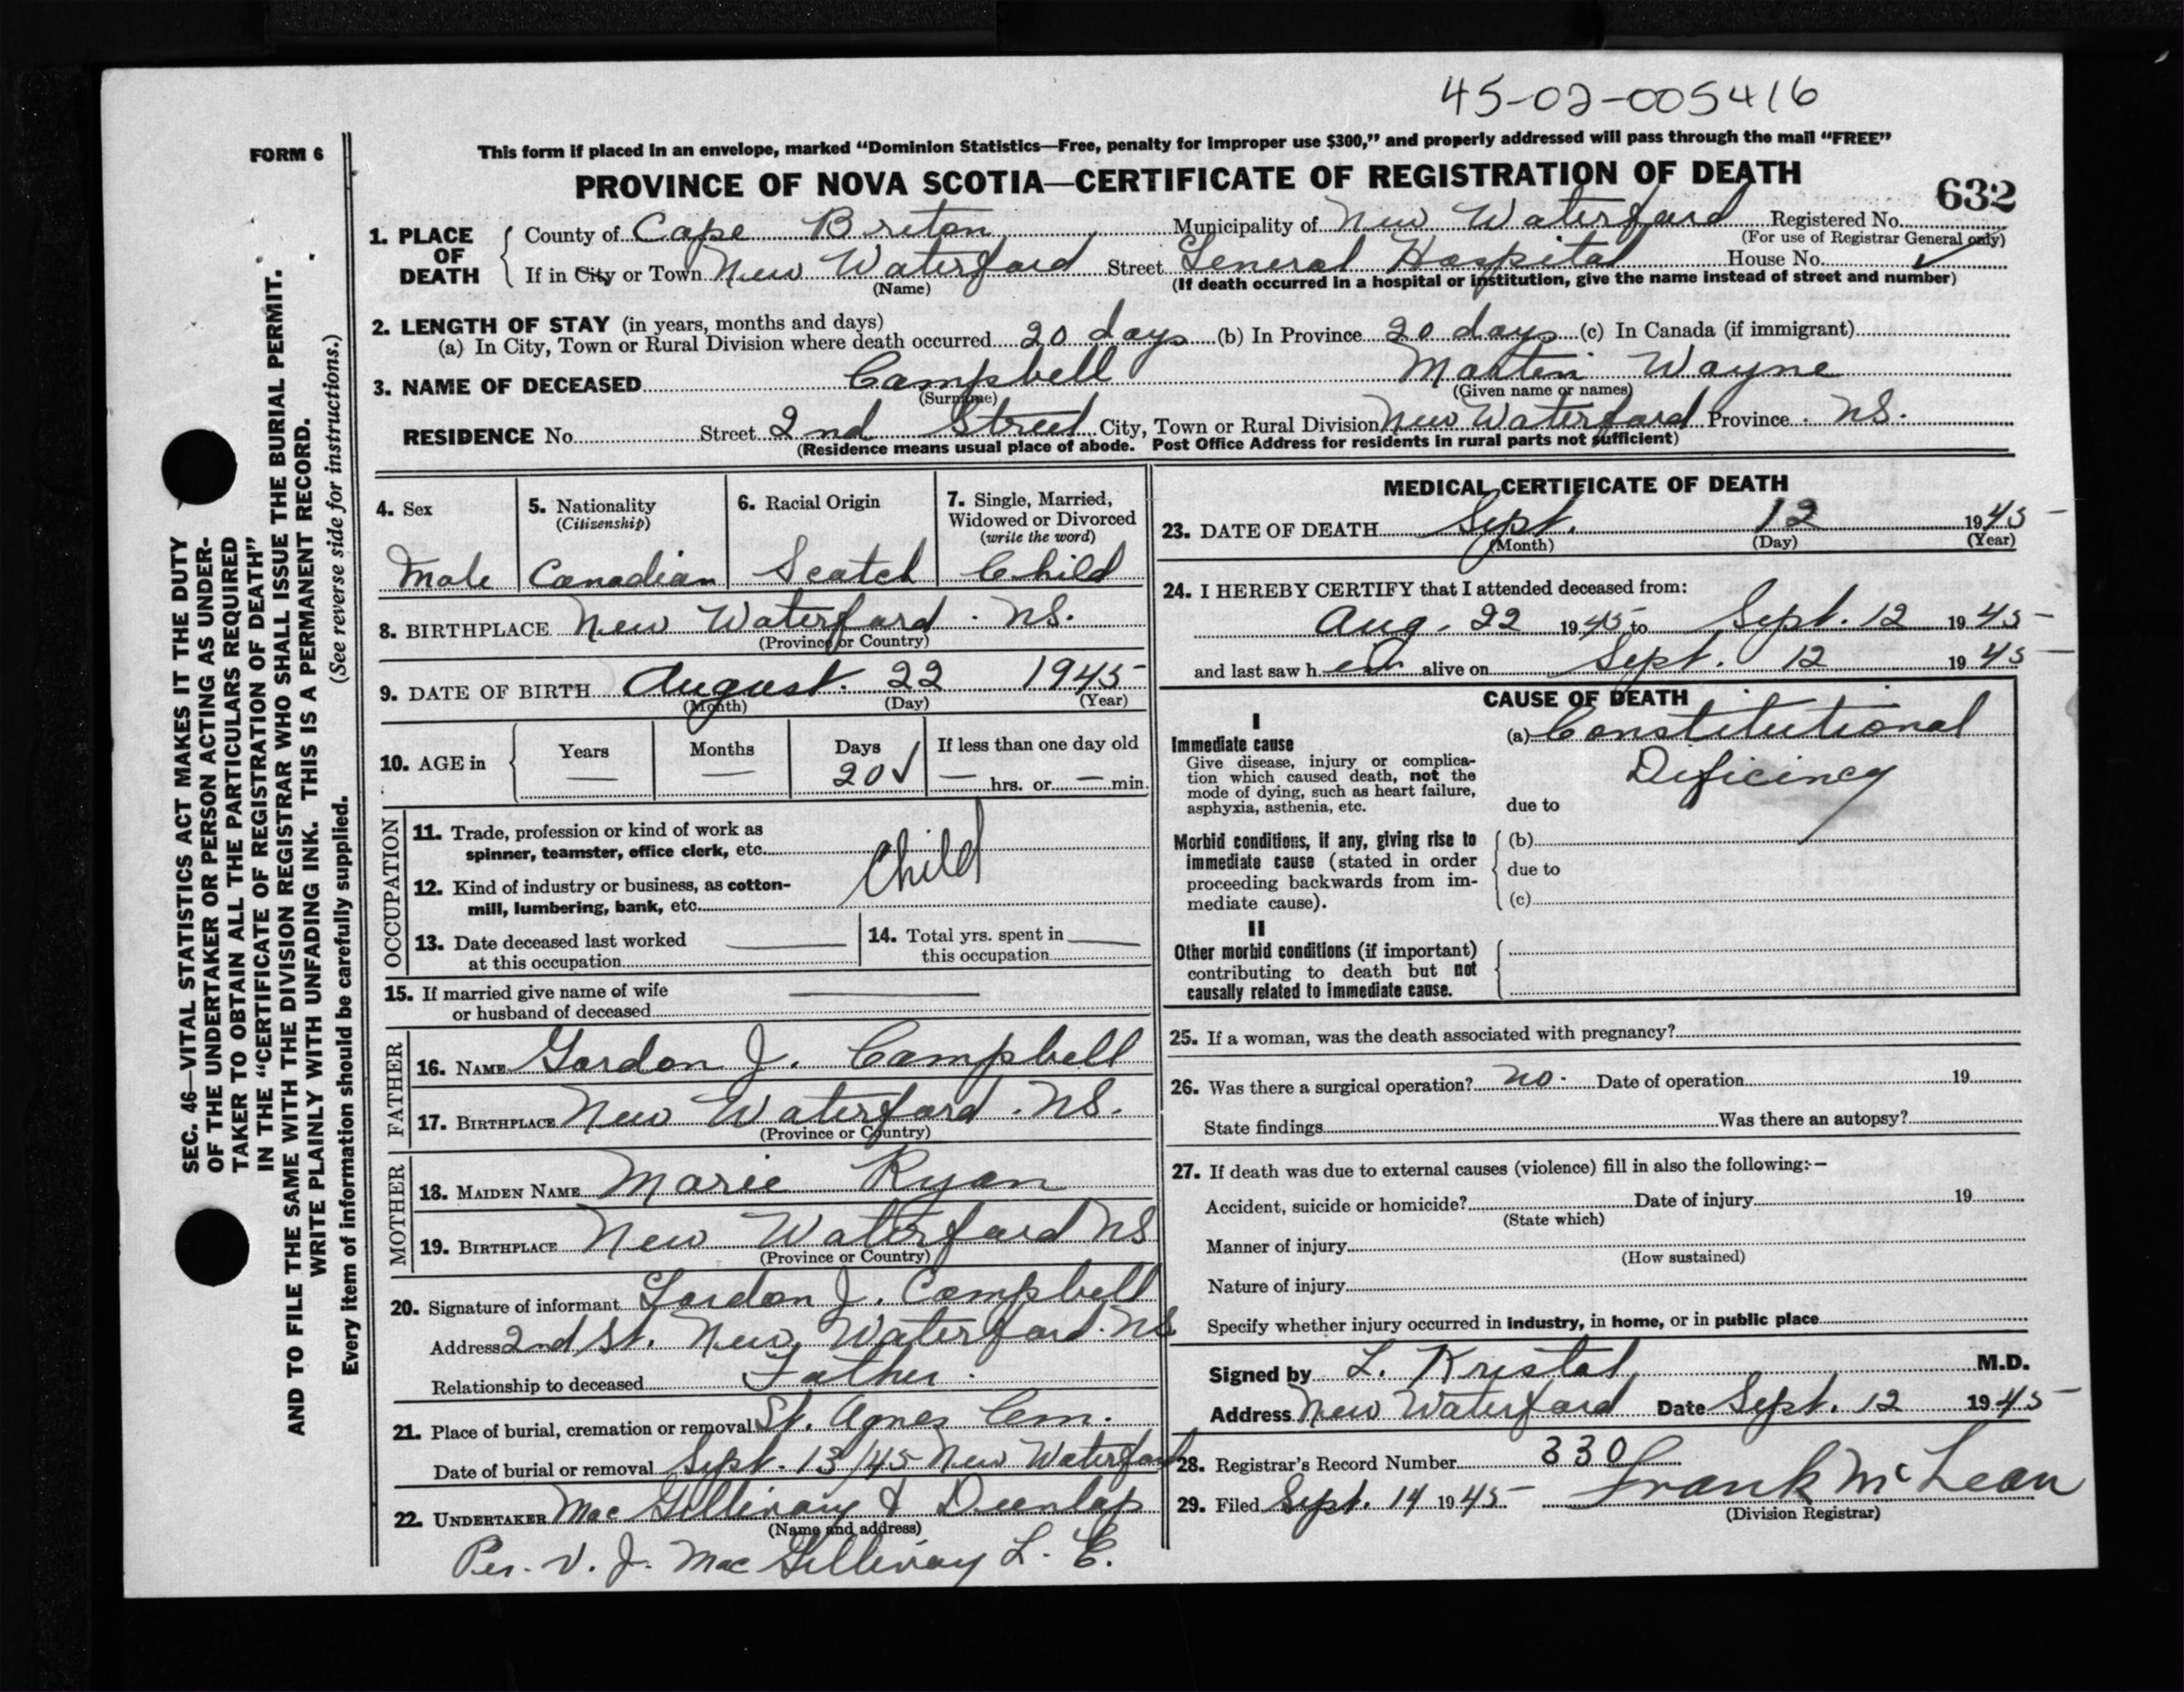 45-02-005416
FORM 6
This form if placed in an envelope, marked "Dominion Statistics—Free, penalty for improper use $300," and properly addressed will pass through the mail "FREE"
PROVINCE OF NOVA SCOTIA—CERTIFICATE OF REGISTRATION OF DEATH
632
1. PLACE OF DEATH
County of Cape Breton Municipality of New Waterford Registered No.
(For use of Registrar General only)
If in City or Town New Waterford Street General Hospital House No.
(Name) (If death occurred in a hospital or institution, give the name instead of street and number)
2. LENGTH OF STAY (in years, months and days)
(a) In City, Town or Rural Division where death occurred 20 days (b) In Province 20 days (c) In Canada (if immigrant)
3. NAME OF DECEASED Campbell Martin Wayne
(Surname) (Given name or names)
RESIDENCE No. Street 2nd Street City, Town or Rural Division New Waterford Province N.S.
(Residence means usual place of abode. Post Office Address for residents in rural parts not sufficient)
4. Sex
Male
5. Nationality
(Citizenship)
Canadian
6. Racial Origin
Scotch
7. Single, Married,
Widowed or Divorced
(write the word)
Child
8. BIRTHPLACE New Waterford. N.S.
(Province or Country)
9. DATE OF BIRTH August. 22 1945
(Month) (Day) (Year)
10. AGE in
Years Months Days If less than one day old
— — 20 — hrs. or — min.
OCCUPATION
11. Trade, profession or kind of work as
spinner, teamster, office clerk, etc.
Child
12. Kind of industry or business, as cotton-
mill, lumbering, bank, etc.
13. Date deceased last worked
at this occupation
14. Total yrs. spent in
this occupation
15. If married give name of wife
or husband of deceased
FATHER
16. NAME Gordon J. Campbell
17. BIRTHPLACE New Waterford. N.S.
(Province or Country)
MOTHER
18. MAIDEN NAME Marie Ryan
19. BIRTHPLACE New Waterford NS
(Province or Country)
20. Signature of informant Gordon J. Campbell
Address 2nd St. New Waterford. NS
Relationship to deceased Father.
21. Place of burial, cremation or removal St. Agnes Cem.
Date of burial or removal Sept. 13/45 New Waterford
22. UNDERTAKER MacGillivary & Dunlap
(Name and address)
Per. V. J. MacGillivay L. E.
MEDICAL CERTIFICATE OF DEATH
23. DATE OF DEATH Sept. 12 1945
(Month) (Day) (Year)
24. I HEREBY CERTIFY that I attended deceased from:
Aug. 22 1945 to Sept. 12 1945
and last saw h alive on Sept. 12 1945
CAUSE OF DEATH
I
Immediate cause
Give disease, injury or complica-
tion which caused death, not the
mode of dying, such as heart failure,
asphyxia, asthenia, etc.
(a) Constitutional
Dificincy
due to
Morbid conditions, if any, giving rise to
immediate cause (stated in order
proceeding backwards from im-
mediate cause).
(b)
due to
(c)
II
Other morbid conditions (if important)
contributing to death but not
causally related to immediate cause.
25. If a woman, was the death associated with pregnancy?
26. Was there a surgical operation? no. Date of operation 19
State findings Was there an autopsy?
27. If death was due to external causes (violence) fill in also the following:—
Accident, suicide or homicide? Date of injury 19
(State which)
Manner of injury
(How sustained)
Nature of injury
Specify whether injury occurred in industry, in home, or in public place
Signed by L. Kristal M.D.
Address New Waterford Date Sept. 12 1945
28. Registrar's Record Number 330
29. Filed Sept. 14 1945 Frank McLean
(Division Registrar)
SEC. 46—VITAL STATISTICS ACT MAKES IT THE DUTY
OF THE UNDERTAKER OR PERSON ACTING AS UNDER-
TAKER TO OBTAIN ALL THE PARTICULARS REQUIRED
IN THE "CERTIFICATE OF REGISTRATION OF DEATH"
AND TO FILE THE SAME WITH THE DIVISION REGISTRAR WHO SHALL ISSUE THE BURIAL PERMIT.
WRITE PLAINLY WITH UNFADING INK. THIS IS A PERMANENT RECORD.
Every item of information should be carefully supplied. (See reverse side for instructions.)